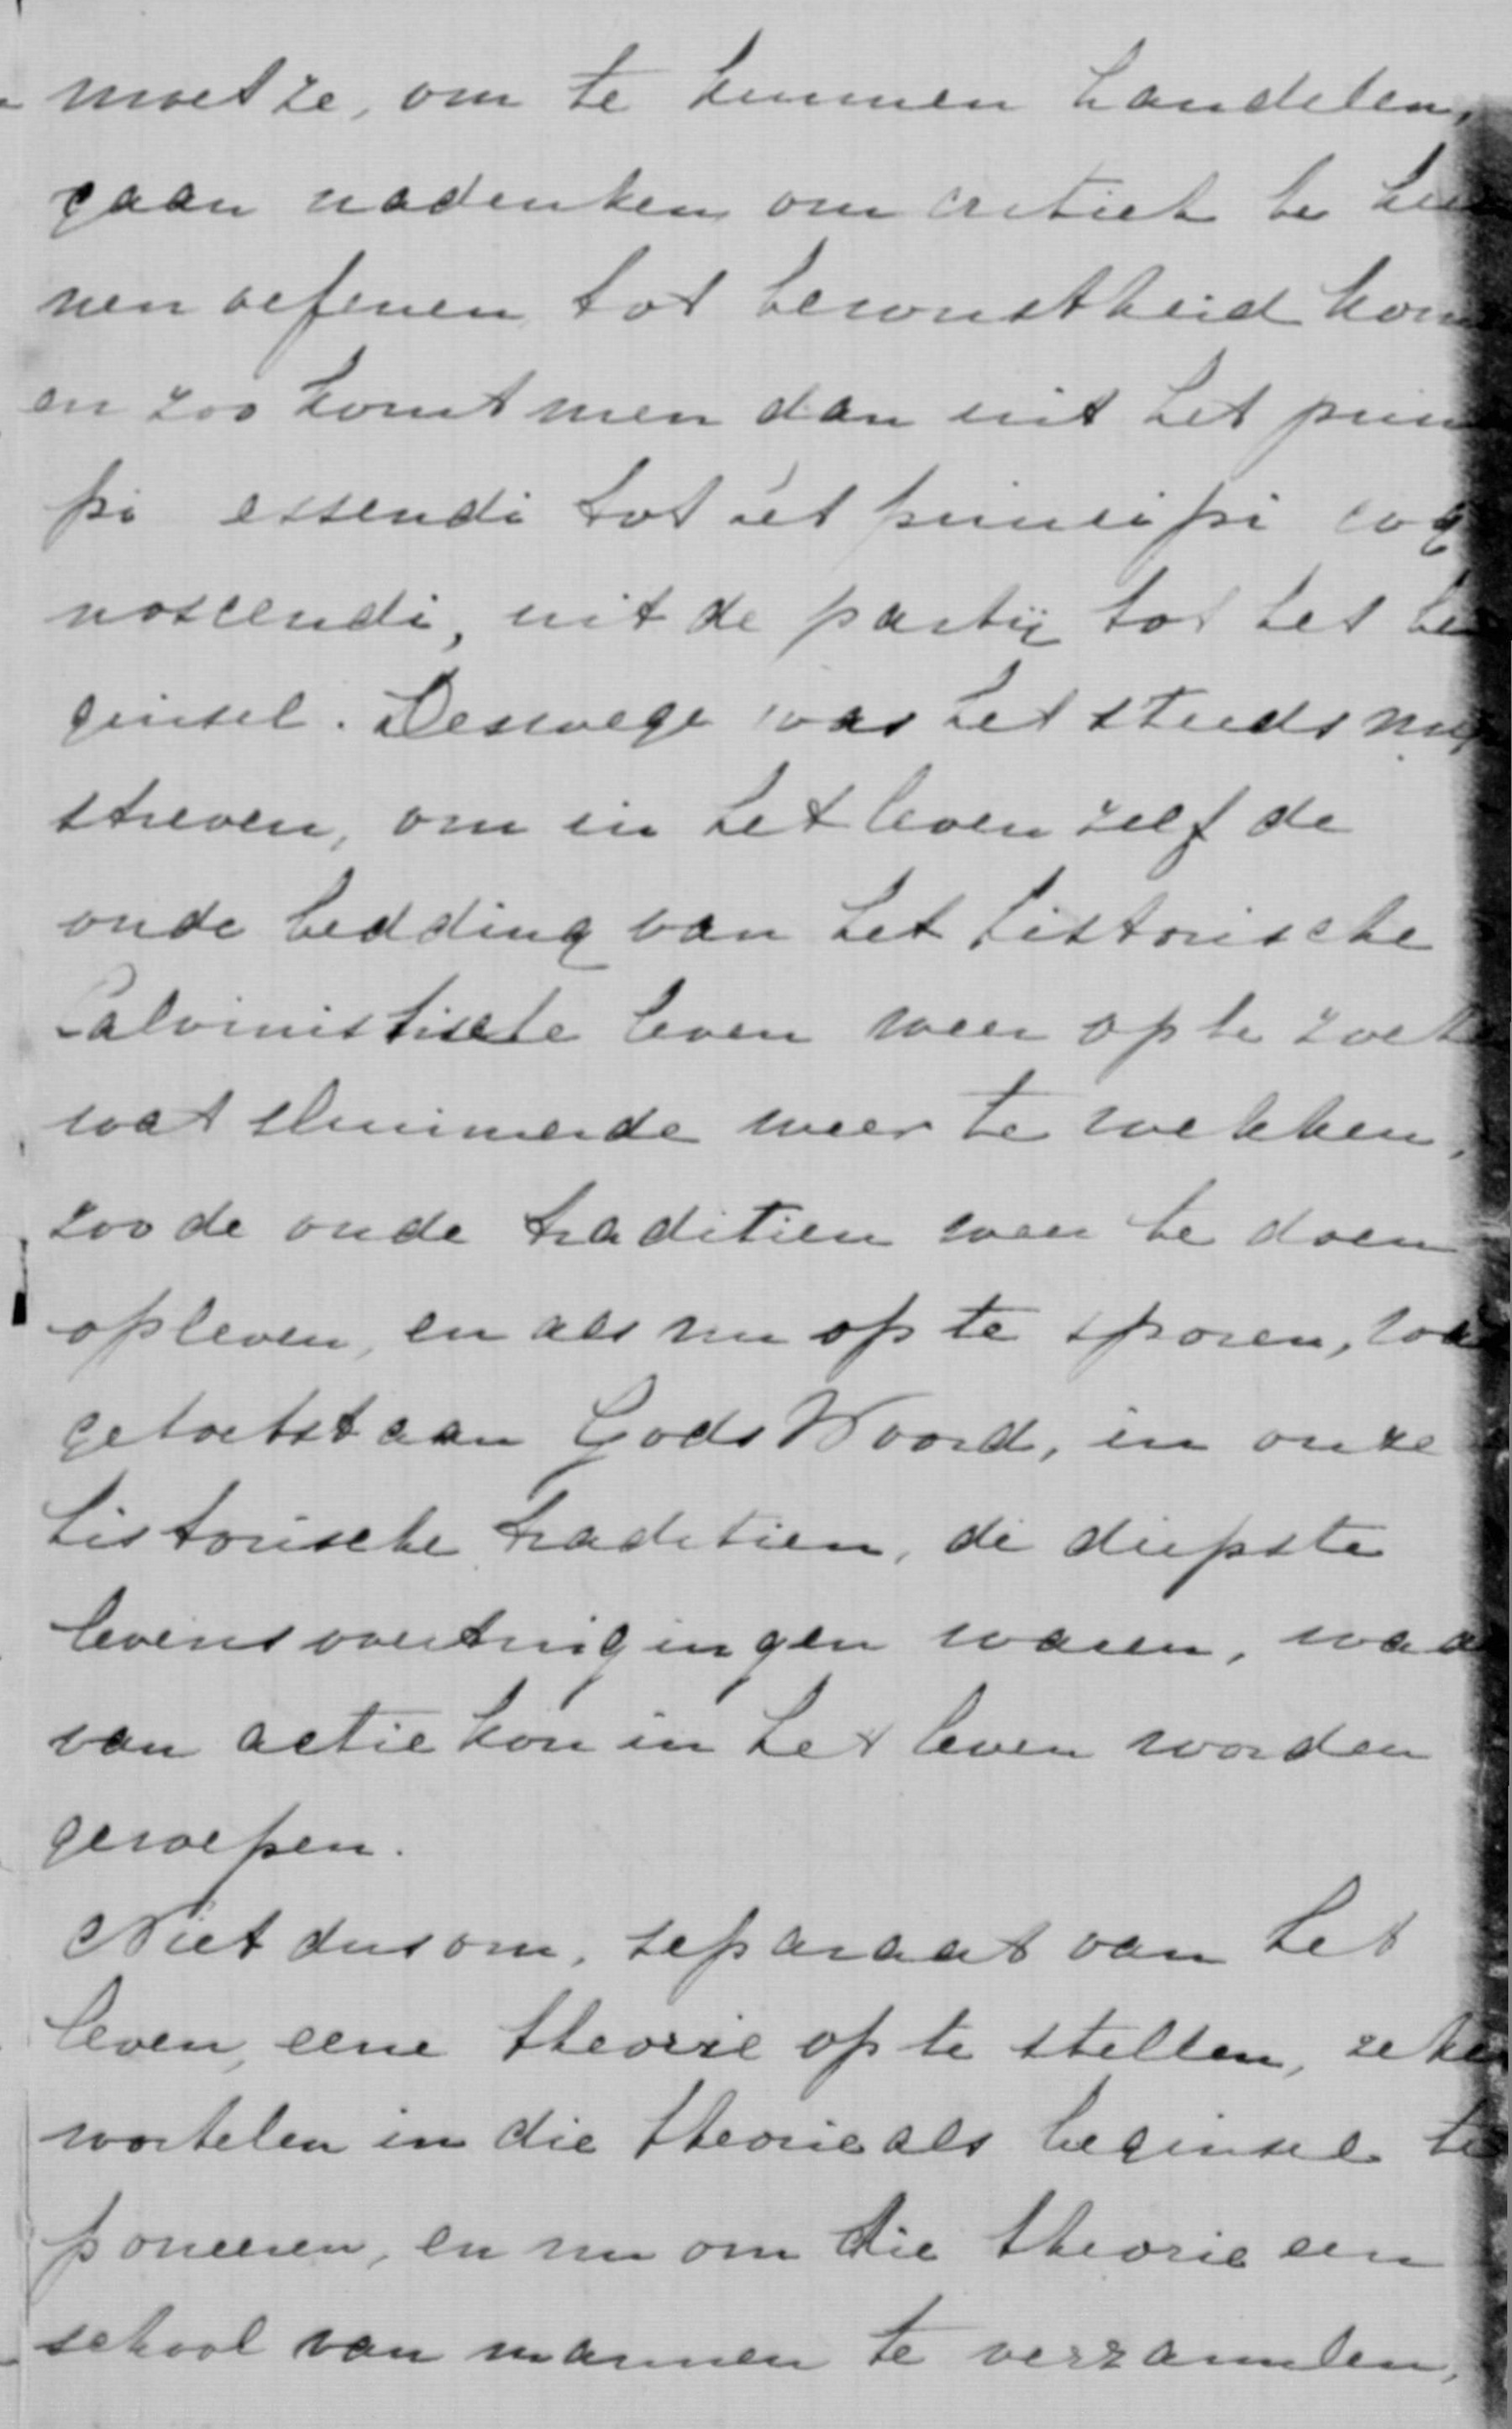 moet ze, om te kunnen handelen,
gaan nadenken om critiek te kun
nen oefenen tot bewustheid kom
en zoo komt men dan uit het prin
pi essendi tot het principi cog
noscendi, uit de partij tot het be
ginsel. Deswege was het steeds mijn
streven, om in het leven zelf de
oude bedding van het historische
Calvinistische leven weer op te zoek
wat sluimerde weer te wekken,
zoo de oude traditien weer te doen
opleven, en als nu op te sporen,
getoetst aan Gods Woord, in onze
historische traditien, de diepste
levensovertuigingen waren, waar
van actie kon in het leven worden
geroepen.
Niet dus om, separaat van het
leven, eene theorie op te stellen, zeker
wortelen in die theorie als beginsel te
poneeren, en nu om die theorie een
school van mannen te verzamelen,